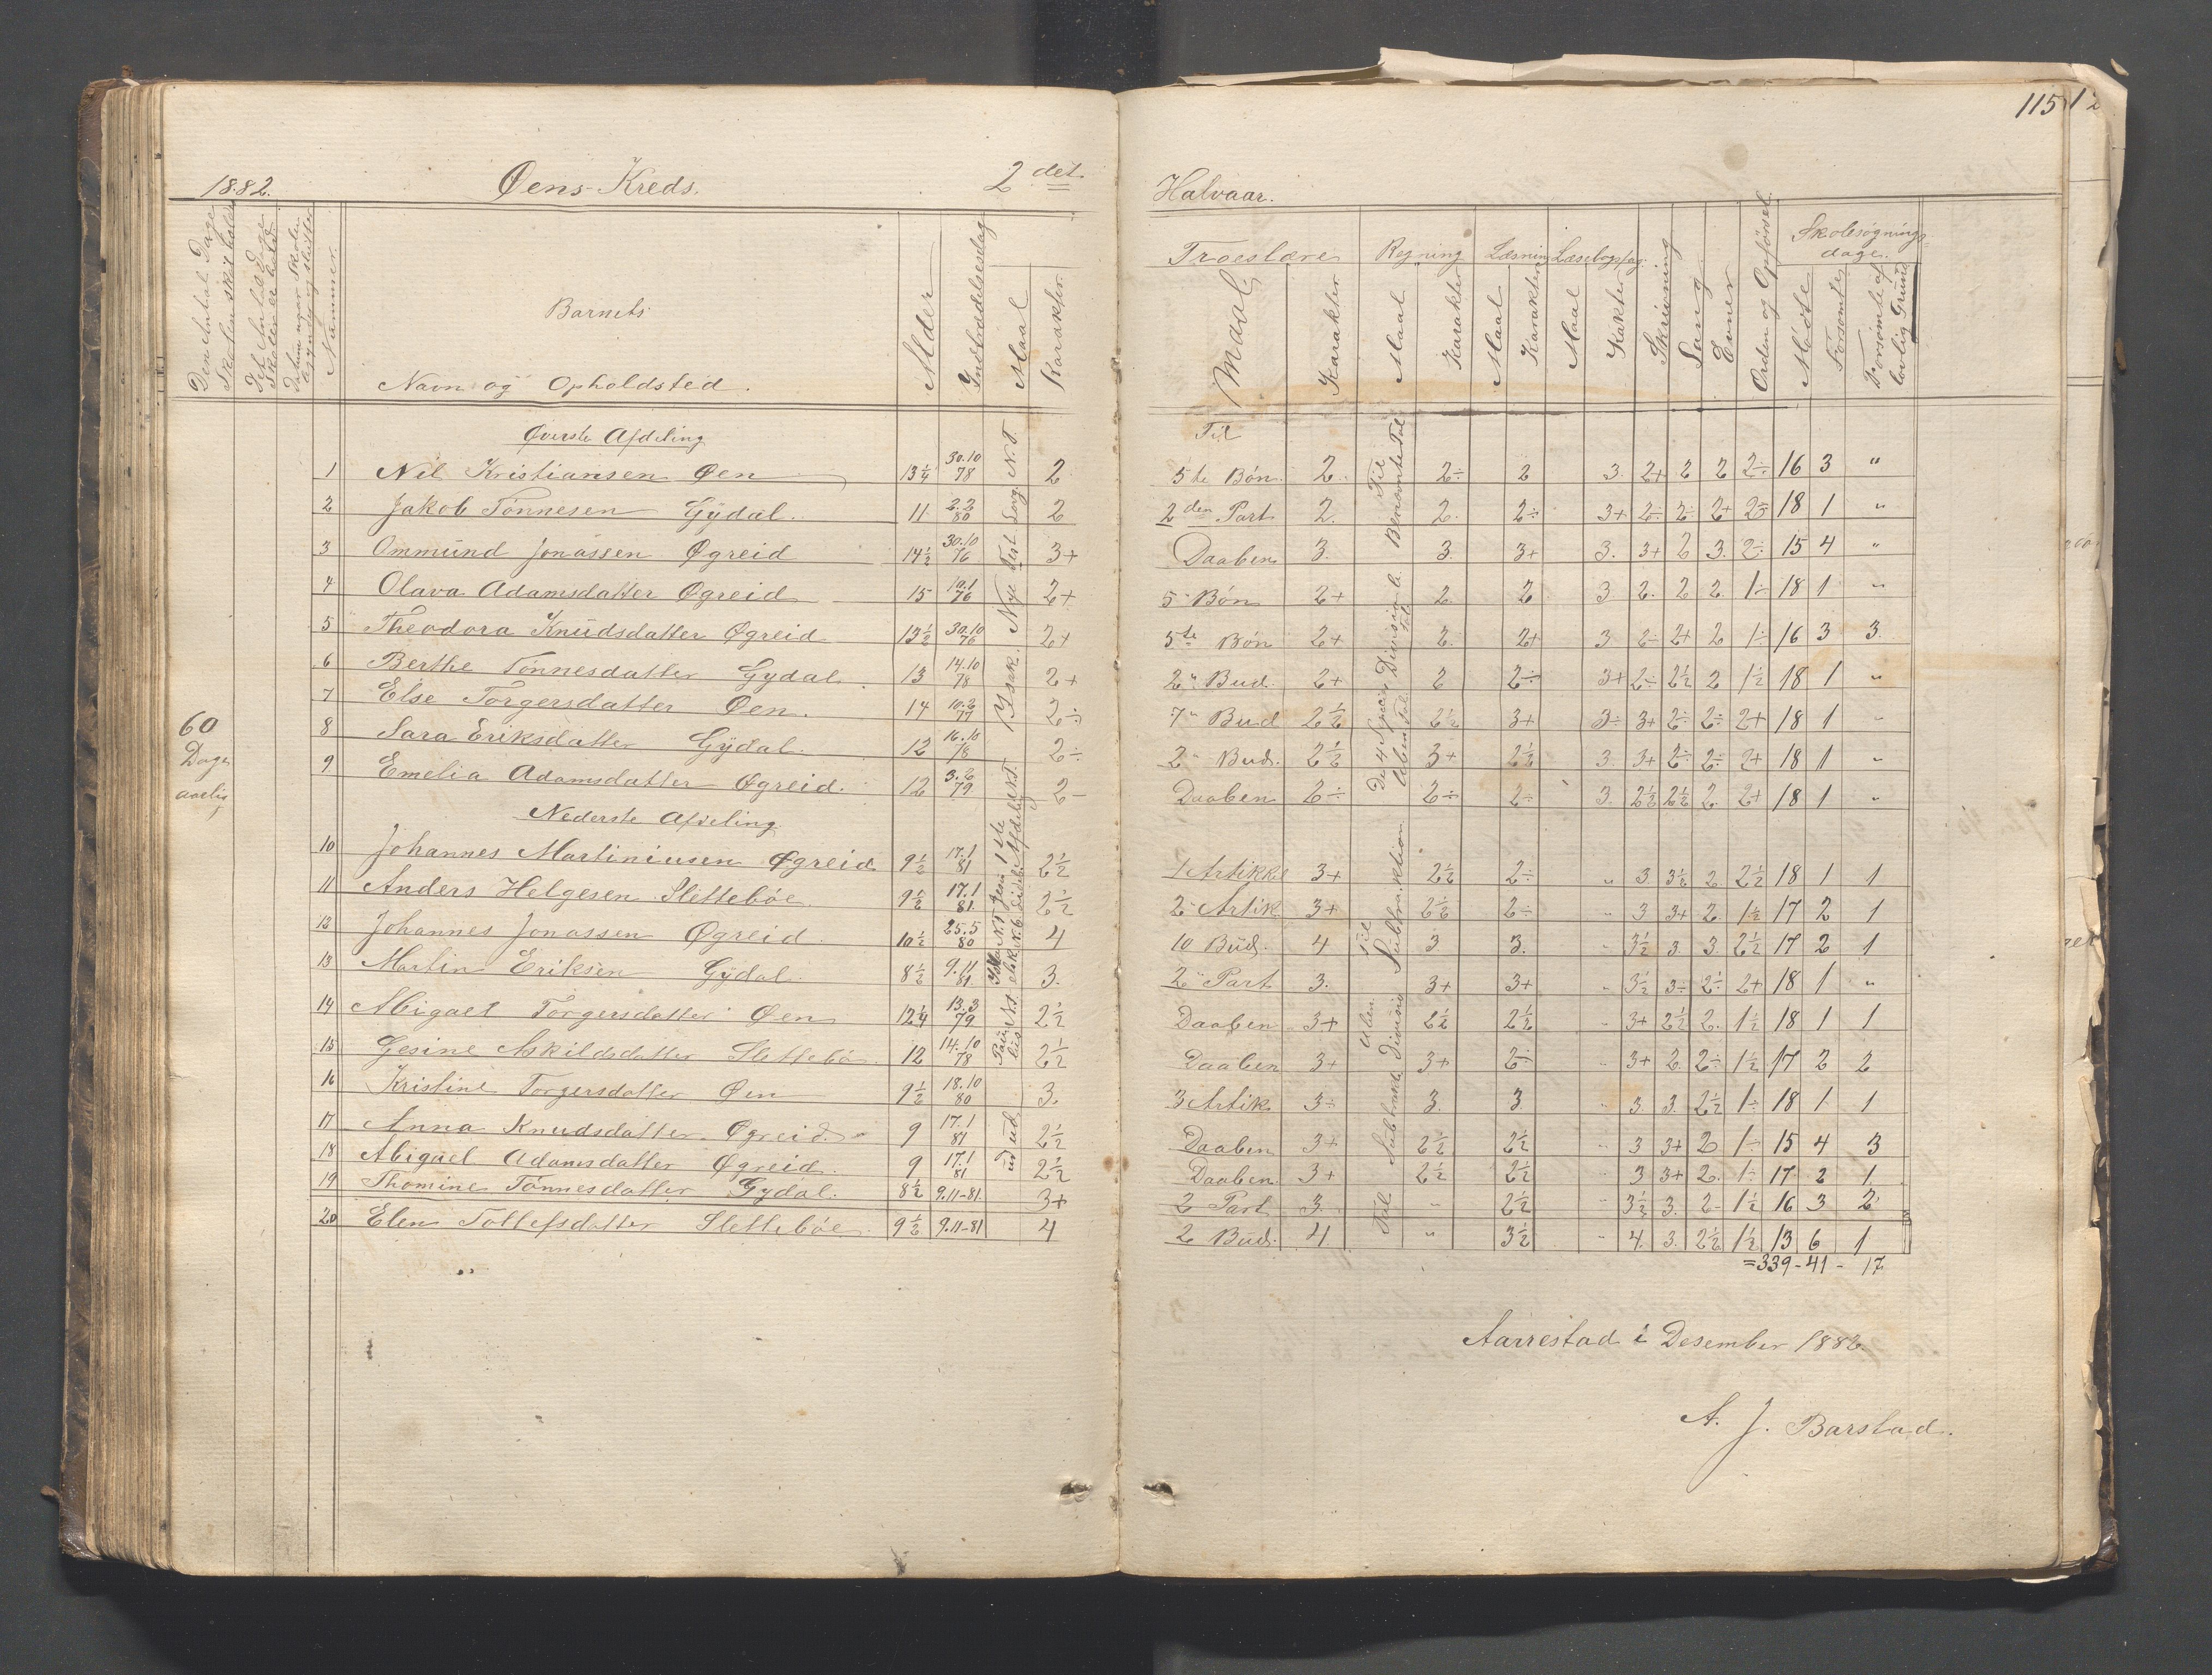 115
1882. Øens Kreds. 2det Halvaar.
Skolen skal holdes
Skolen er holdt
Nummer.
Barnets
Navn og Opholdsted.
Alder
Indtrædelsesdag
Maal
Karakter
Troeslære
Maal
Karakter
Regning
Maal
Karakter
Læsning
Maal
Karakter
Læsebogsfag.
Maal
Skrivning
Sang
Evner
Orden og Opførsel.
Skolesøgnings-
dage.
Mødte
Forsømte
Forsømte af
lovlig Grund
60
Dage
aarlig
Øverste Afdeling Til
1 Nil Kristiansen Øen 13¼ 30.10 78 2 5te Bøn. 2. 2÷ 2 3. 2+ 2 2 2÷ 16 3 "
2 Jakob Tønnesen Gÿdal. 11 2.2 80 2 2den Part 2. 2. 2÷ 3+ 2÷ 2÷ 2+ 2÷ 18 1 "
3 Ommünd Jonassen Øgreid 14½ 30.10 76 3+ Daaben 3. 3. 3+ 3. 3+ 2 3. 2÷ 15 4 "
4 Olava Adamsdatter Øgreid 15 10.1 76 2+ 5" Bøn 2+ 2. 2 3. 2. 2 2. 1÷ 18 1 "
5 Theodora Knüdsdatter Øgreid 13½ 30.10 76 2+ 5te Bøn 2+ 2. 2+ 3. 2÷ 2+ 2 1÷ 16 3 3.
6 Berthe Tønnesdatter Gydal 13 14.10 78 2+ 2" Bud. 2+ 2 2÷ 3+ 2÷ 2½ 2 1½ 18 1 "
7 Else Torgersdatter Øen. 14 10.2 77 2÷ 7" Bud 2½ 2½ 3+ 3÷ 3+ 2÷ 2÷ 2+ 18 1 "
8 Sara Eriksdatter Gÿdal. 12 16.10 78 2÷ 2" Bud. 2½ 3+ 2½ 3. 3+ 2÷ 2÷ 2+ 18 1 "
9 Emelia Adamsdatter Øgreid. 12 3.2 79 2- Daaben 2÷ 2÷ 2÷ 3. 2½ 2½ 2. 2+ 18 1 "
Nederste Afdeling
10 Johannes Martiniusen Øgreid 9½ 17.1 81 2½ 1 Artikke 3+ 2½ 2÷ " 3. 3½ 2 2½ 18 1 1
11 Anders Helgesen Slettebøe 9½ 17.1 81. 2½ 2" Artik 3+ 2½ 2÷ " 3 3+ 2. 1½ 17 2 1
12 Johannes Jonassen Øgreid 10½ 25.5 80 4 10 Büd. 4 3 3. " 3½ 3. 3. 2½ 17 2 1
13 Martin Eriksen Gÿdal 8½ 9.11 81 3. 2" Part 3. 3+ 3+ " 3½ 3÷ 2÷ 2+ 18 1 "
14 Abigael Torgersdatter Øen 12¼ 13.3 79 2½ Daaben 3+ 2½ 2½ " 3+ 2½ 2. 1½ 18 1 1
15 Gesine Askildsdatter Slettebø 12 14.10 78 2½ Daaben 3+ 3+ 2÷ " 3+ 2. 2÷ 1½ 17 2 2
16 Kristine Torgersdatter Øen 9½ 18.10 80 3. 3 Artik 3÷ 3. 3 " 3. 3. 2½ 1÷ 18 1 1
17 Anna Knudsdatter Øgreid. 9 17.1 81 2½ Daaben 3+ 2½ 2½ " 3 3+ 2 1÷ 15 4 3
18 Abigael Adamsdatter Øgreid. 9 17.1 81 2½ Daaben 3+ 2½ 2½ " 3 3+ 2. 1÷ 17 2 1
19 Thomine Tønnesdatter Gydal. 8½ 9.11-81. 3+ 2 Part 3. " 2½ " 3½ 3. 2- 1½ 16 3 2
20 Elen Tollefsdatter Slettebøe 9½ 9.11-81 4 2 Bud. 4 " 3½ " 4. 3. 2½ 1½ 13 6 1
=339-41- 17
Aarrestad i Desember 1882.
A. J. Barstad.